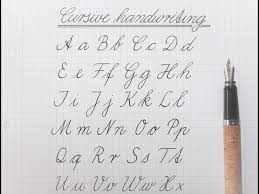 Cursive handwriting
A a B b C c D d
E e F f G g H h
I i J j K k L l
M m N n O o P p
Q q R r S s T t
U u V v W w X x